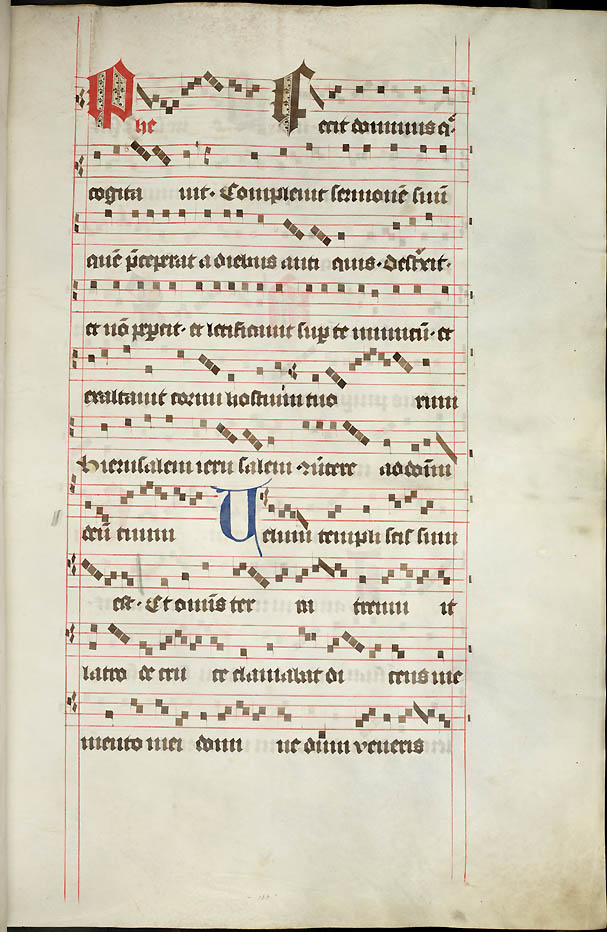 Phe Fecit dominus q̄
cogita uit. Compleuit sermonē suū
quē p̄ceperat a diebus anti quis. destruxit.
et nō pepcit. et letificauit sup te inimicū. et
exaltauit cornu hostium tuo rum
Hierusalem ieru salem. ad dōm̄
deū tuum Velum templi scīs sum
est. Et omīs ter ra tremu it
latro de cru ce clamabat di cens me
mento mei domi ne dum veneris